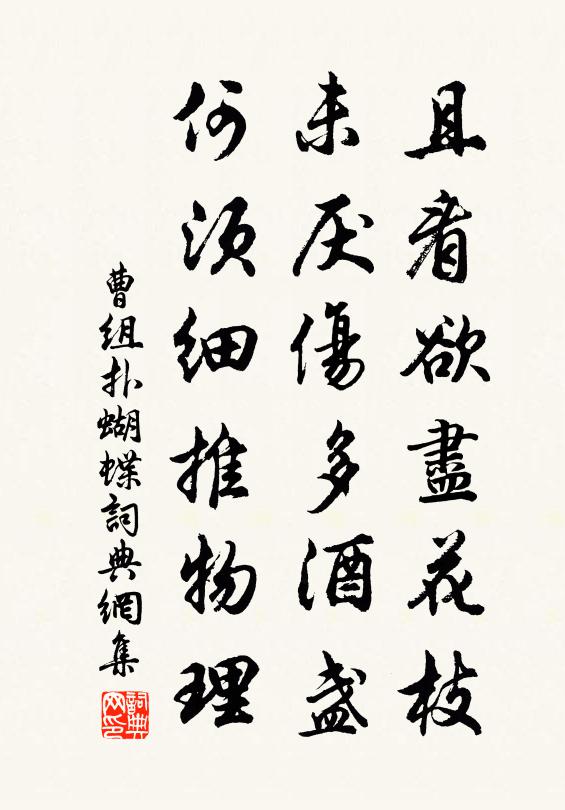 且看欲盡花枝
未厌傷多酒盏
何須細推物理
曹组扑蝴蝶詞典網集
詞典网印